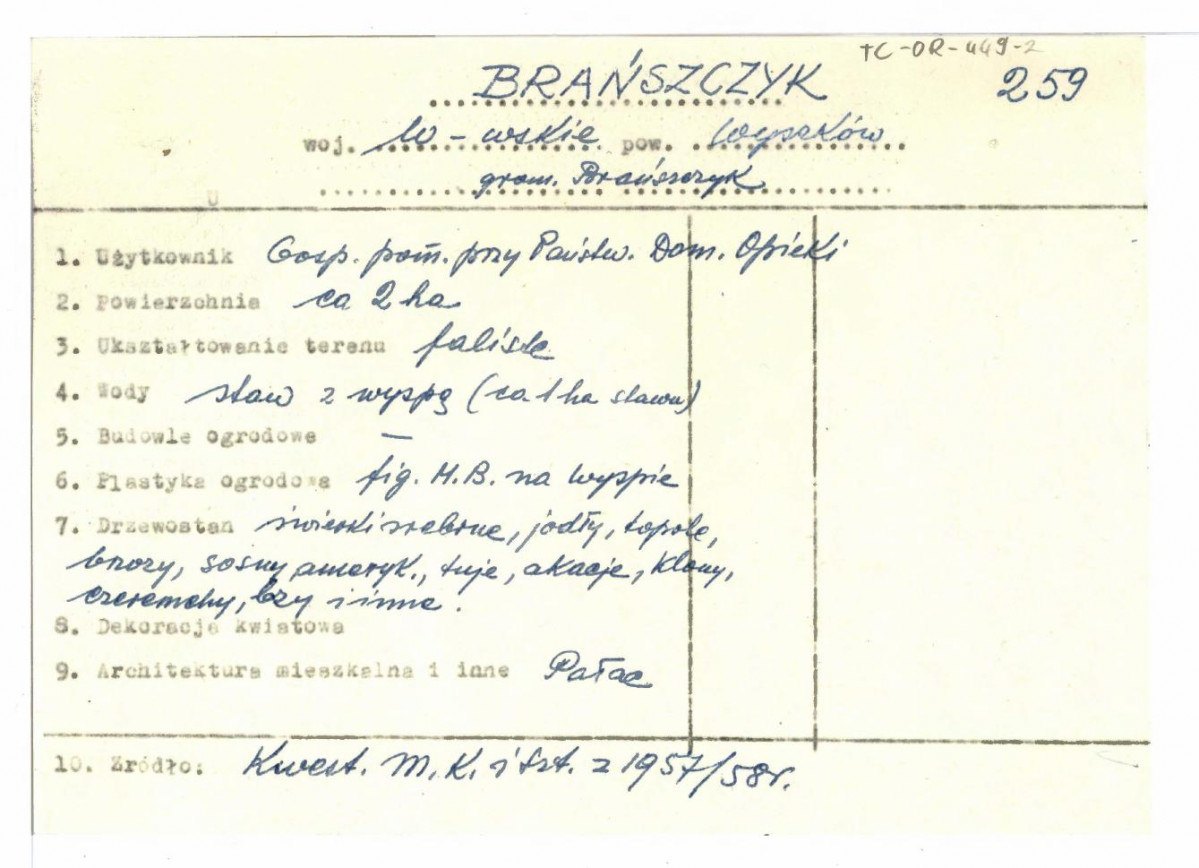 TC-OR-449-2
BRAŃSZCZYK 259
woj. W-wskie pow. Wyszków
grom. Brańszczyk
1. Użytkownik Gosp. pom. przy Państw. Dom. Opieki
2. Powierzchnia ca 2 ha
3. Ukształtowanie terenu faliste
4. Wody staw z wyspą (ca 1 ha stawu)
5. Budowle ogrodowe —
6. Plastyka ogrodowa fig. M.B. na wyspie
7. Drzewostan świerki srebrne, jodły, topole,
brzozy, sosny ameryk., tuje, akacje, klony,
czeremchy, bzy i inne.
8. Dekoracja kwiatowa
9. Architektura mieszkalna i inne Pałac
10. Źródło: Kwest. M. K. i Szt. z 1957/58r.